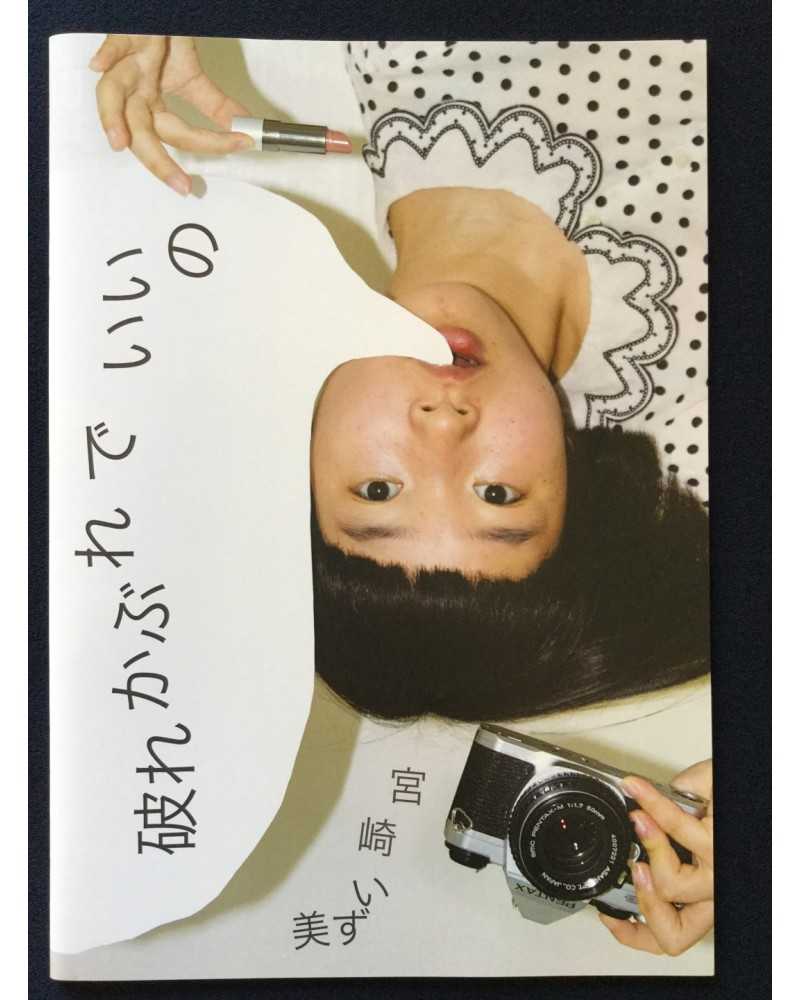 破れかぶれでいいの
宮崎いず美
smc PENTAX-M 1:1.7 50mm
ASAHI OPT. CO., JAPAN
PENTAX